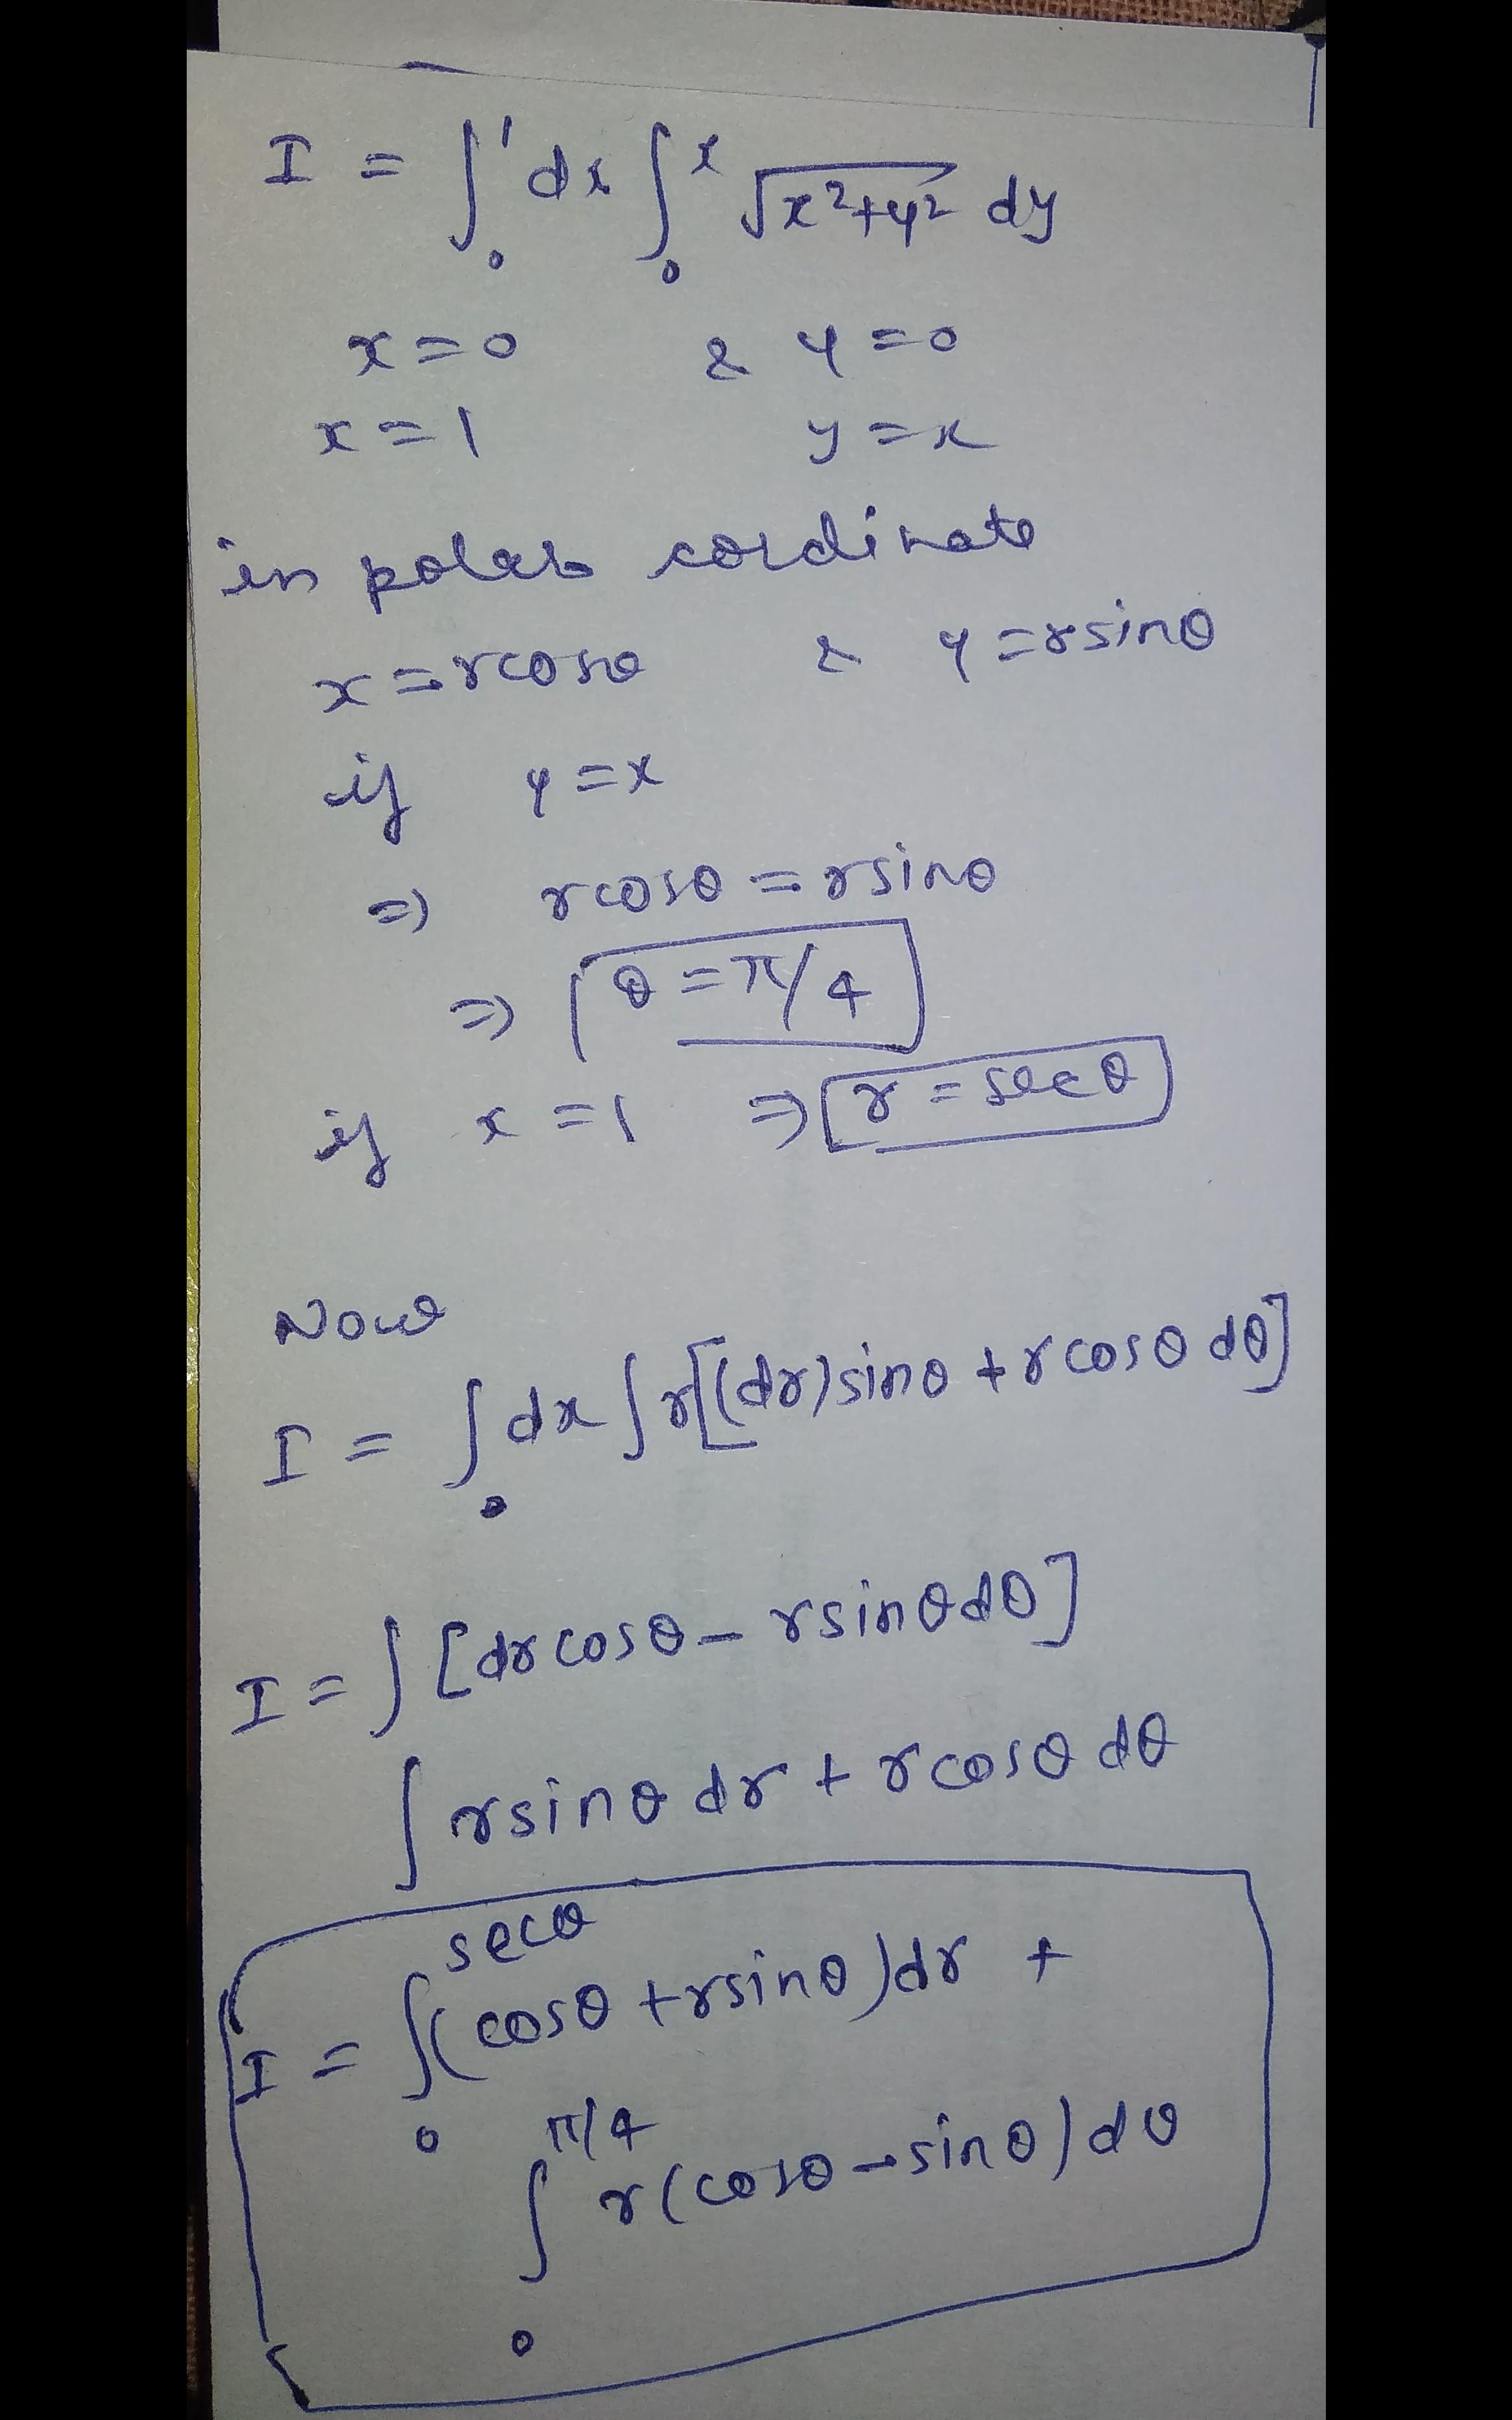 I = ∫₀¹ dx ∫₀ˣ √x²+y² dy
x=0 & y=0
x=1 y=x
in polar cordinate
x=rcosθ & y=rsinθ
if y=x
⇒ rcosθ=rsinθ
⇒ θ=π/4
if x=1 ⇒ r=secθ
Now
I = ∫₀ dx ∫ r[(dr)sinθ + rcosθ dθ]
I = ∫[dr cosθ - rsinθdθ]
∫ rsinθ dr + rcosθ dθ
I = ∫₀^secθ (cosθ + rsinθ)dr +
∫₀^π/4 r(cosθ - sinθ)dθ